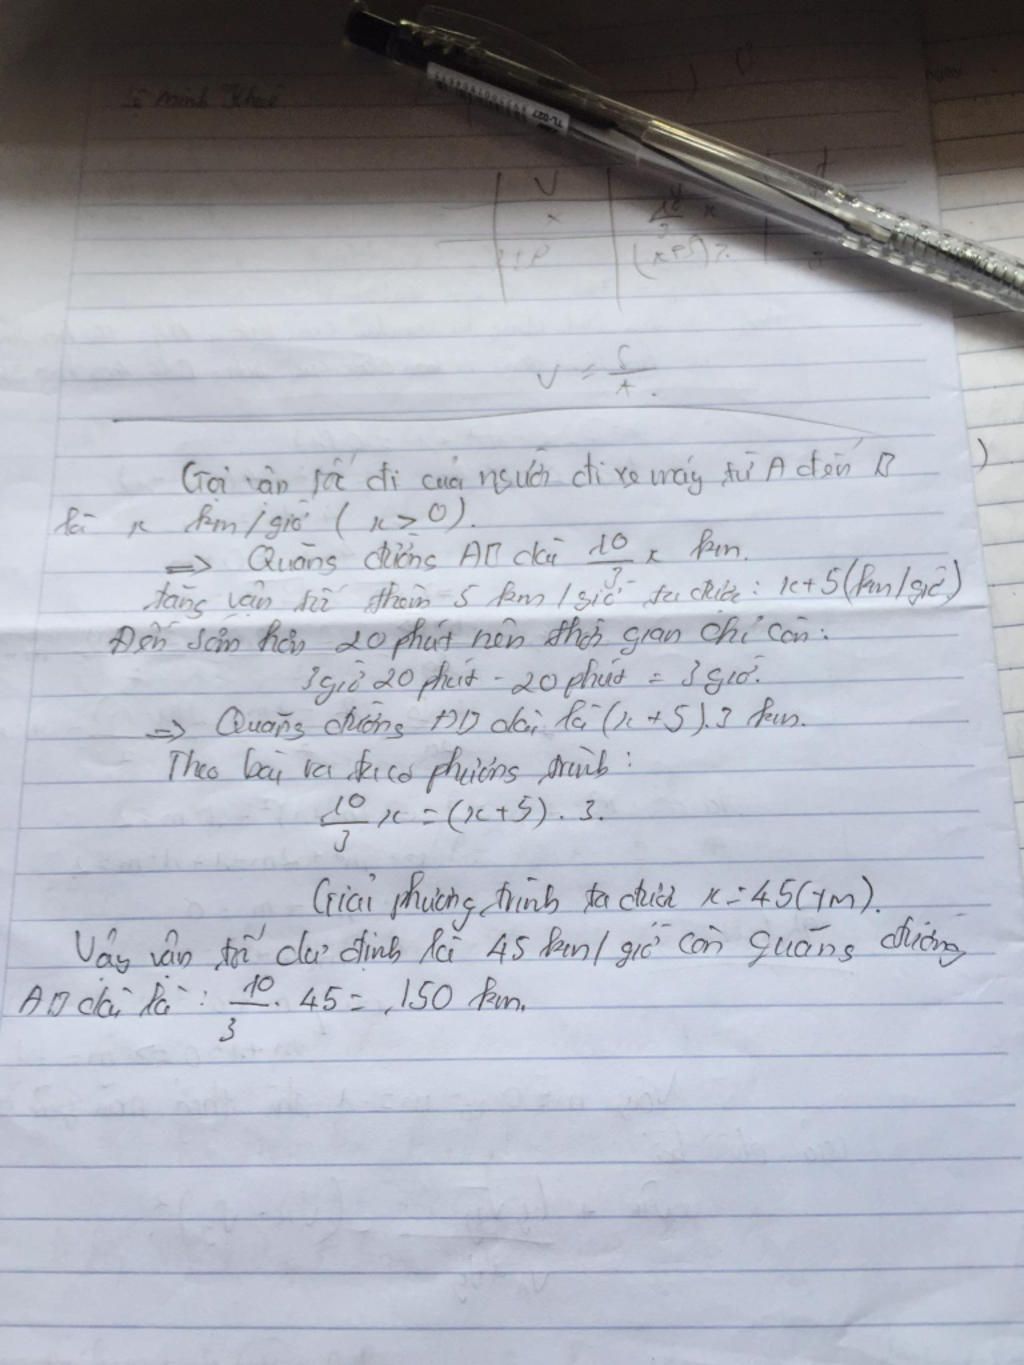 Lê Minh Khuê
TL-027
V
x
10/3 x
(x+5)3
V = S/t.
Gọi vận tốc đi của người đi xe máy từ A đến B
là x km/giờ ( x > 0 ).
=> Quãng đường AB dài 10/3 x km.
tăng vận tốc thêm 5 km/giờ ta được: x+5 (km/giờ)
Đến sớm hơn 20 phút nên thời gian chỉ còn:
3 giờ 20 phút - 20 phút = 3 giờ.
=> Quãng đường AB dài là (x+5).3 km.
Theo bài ra ta có phương trình:
10/3 x = (x+5) . 3.
Giải phương trình ta được x = 45 (TM).
Vậy vận tốc dự định là 45 km/giờ còn quãng đường
AB dài là: 10/3 . 45 = 150 km.